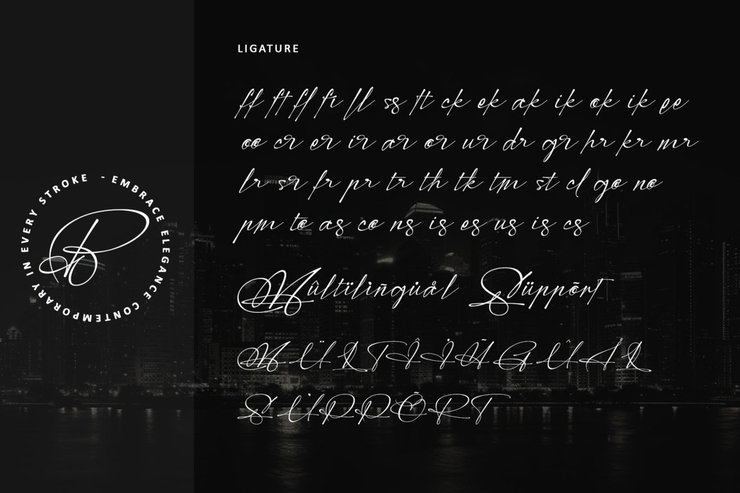 LIGATURE
ff ft fl fr ll ss tt ck ek ak ik ok ik ee
oo cr er ir ar or ur dr gr hr kr mr
lr sr fr pr tr th tk tm st cl go no
pm to as co ns is es us is cs
Mûltïlïñgüål Süppõrt
EMBRACE ELEGANCE CONTEMPORARY IN EVERY STROKE -
B